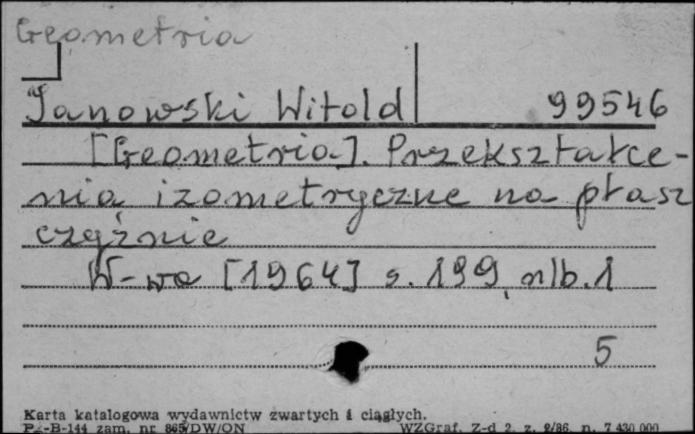 Geometria
Janowski Witold 99546
[Geometria]. Przekształce-
nia izometryczne na płasz
czyźnie
W-wa [1964] s. 199, nlb. 1
5
Karta katalogowa wydawnictw zwartych i ciągłych.
Pz-B-144 zam. nr 865/DW/ON WZGraf. Z-d 2. z. 2/86. n. 7 430 000